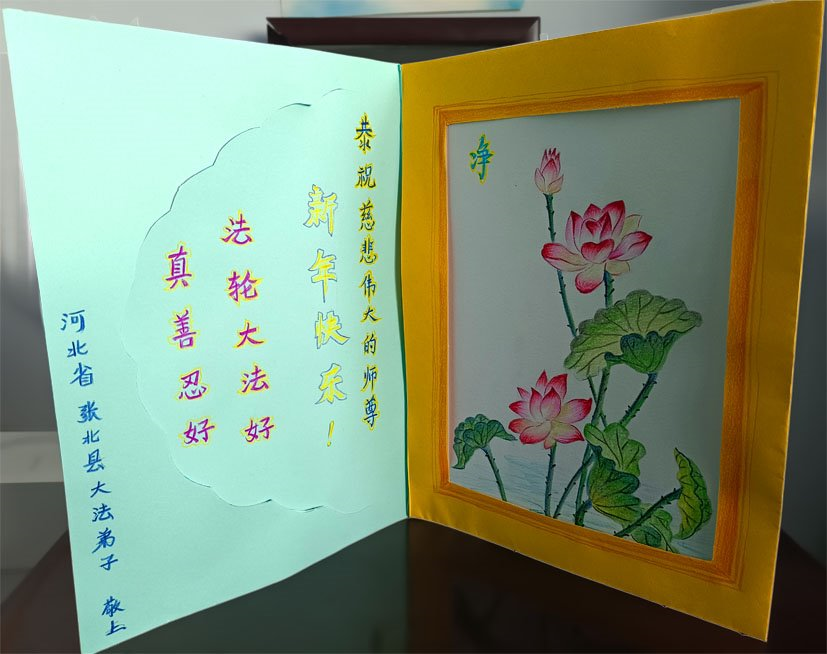 恭祝慈悲伟大的师尊
新年快乐！
法轮大法好
真善忍好
河北省张北县大法弟子 敬上
净